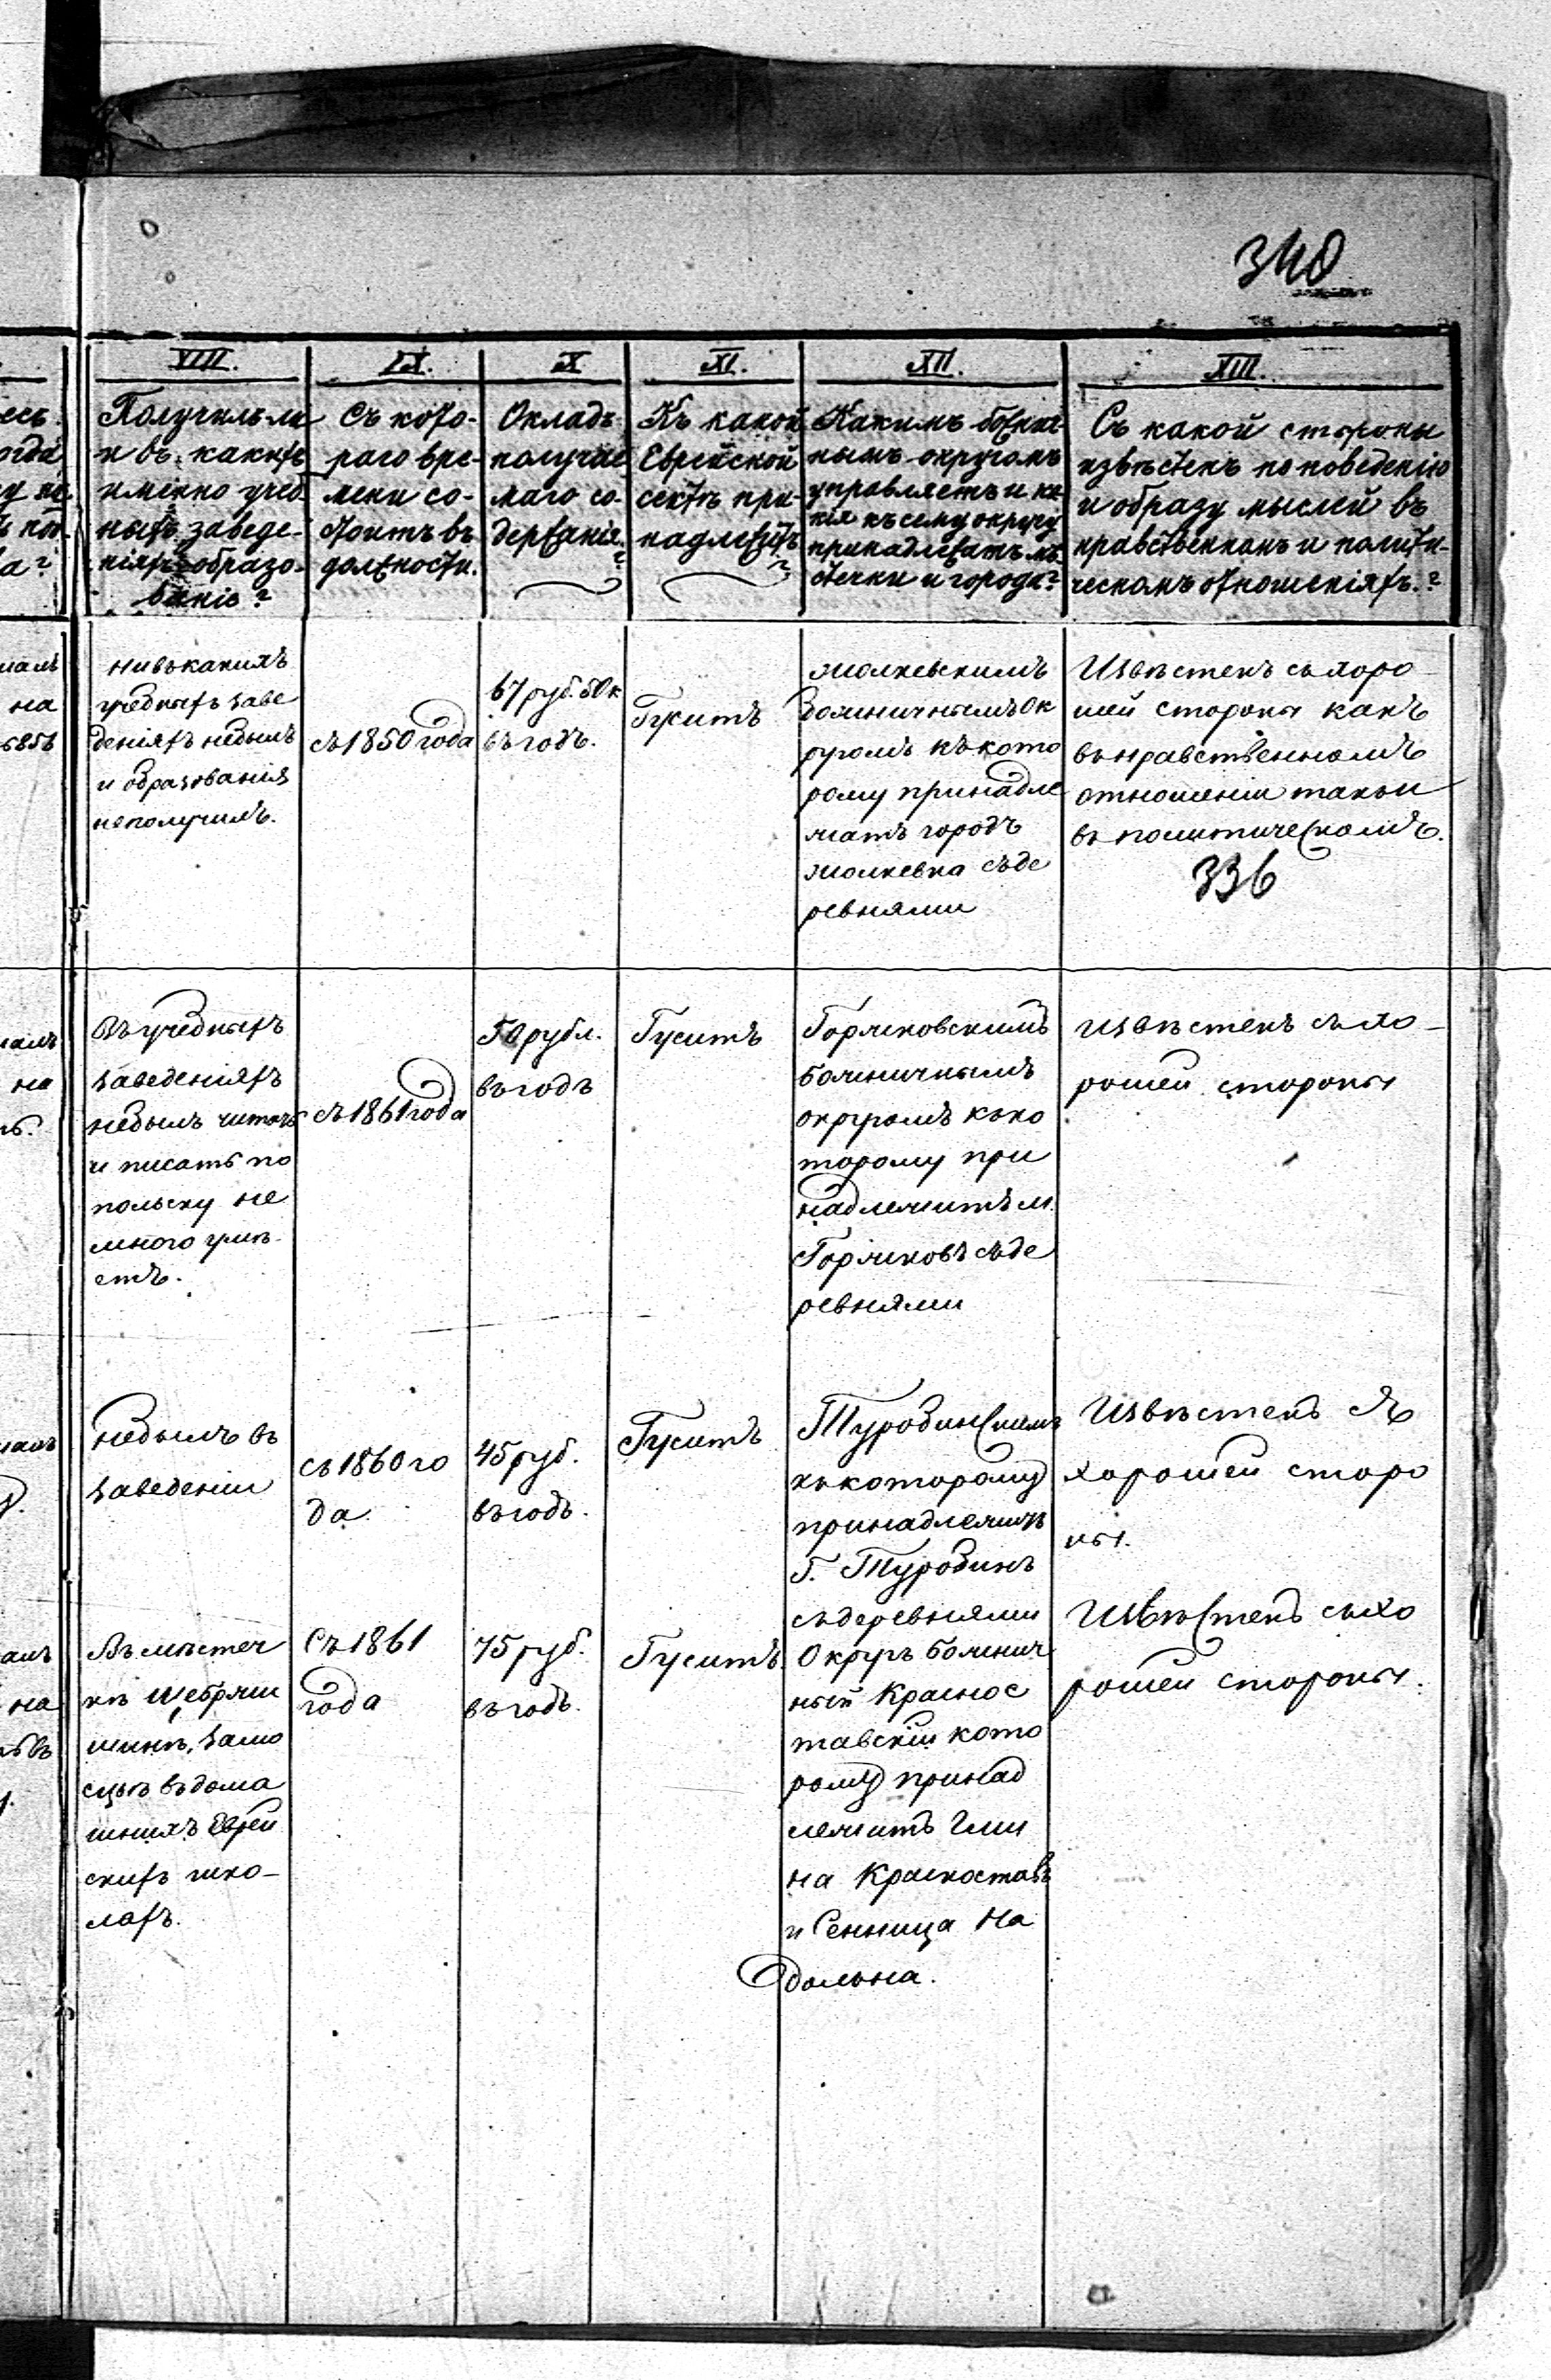 340
VIII.
Получилъ ли
и въ какихъ
именно учеб
ныхъ заведе-
ніяхъ образо-
ваніе?
IX.
Съ кото-
раго вре-
мени со-
стоитъ въ
должности.
X
Окладъ
получае
маго со-
держанія.
?
XI.
Къ какой
Еврейской
сектѣ при-
надлежитъ
?
XII.
Какимъ божнич
нымъ округомъ
управляетъ и ка
кія къ сему округу
принадлежатъ мѣ
стечки и города?
XIII.
Съ какой стороны
извѣстенъ по поведенію
и образу мыслей въ
нравственномъ и полити-
ческомъ отношеніяхъ.?
нивъкакихъ
учебныхъ заве
деніяхъ небылъ
и образованія
неполучилъ.
съ 1850 года
67 руб. 50 к
въ годъ.
Гуситъ
Жолкевскимъ
Божничнымъ Ок
ругомъ къ кото
рому принадле
жатъ городъ
Жолкевка съ де
ревнями
Извѣстенъ съ хоро
шей стороны какъ
въ нравственномъ
отношеніи такъ и
въ политическомъ.
336
Въ учебныхъ
заведеніяхъ
небылъ читать
и писать по
польску не
много умѣ
етъ.
съ 1861 года
50 рубл.
въ годъ
Гуситъ
Горжковскимъ
Божничнымъ
округомъ къ ко
торому при
надлежитъ м.
Горжковъ съ де
ревнями
Извѣстенъ съ хо-
рошей стороны
небылъ въ
заведеніи
съ 1860 го
да
45 руб.
въ годъ.
Гуситъ
Туробинскимъ
къ которому
принадлежитъ
Г. Туробинъ
съ деревнями
Извѣстенъ съ
хорошей сторо
ны.
Въ мѣстеч
кѣ Щебрже
шинѣ, Замо
сцьѣ въ дома
шнихъ Еврей
скихъ шко-
лахъ.
Съ 1861
года
75 руб.
въ годъ.
Гуситъ
Округъ Божнич
ный Краснос
тавскій кото
рому принад
лежитъ Гми
на Красноставъ
и Сенница На
дольна.
Извѣстенъ съ хо
рошей стороны.